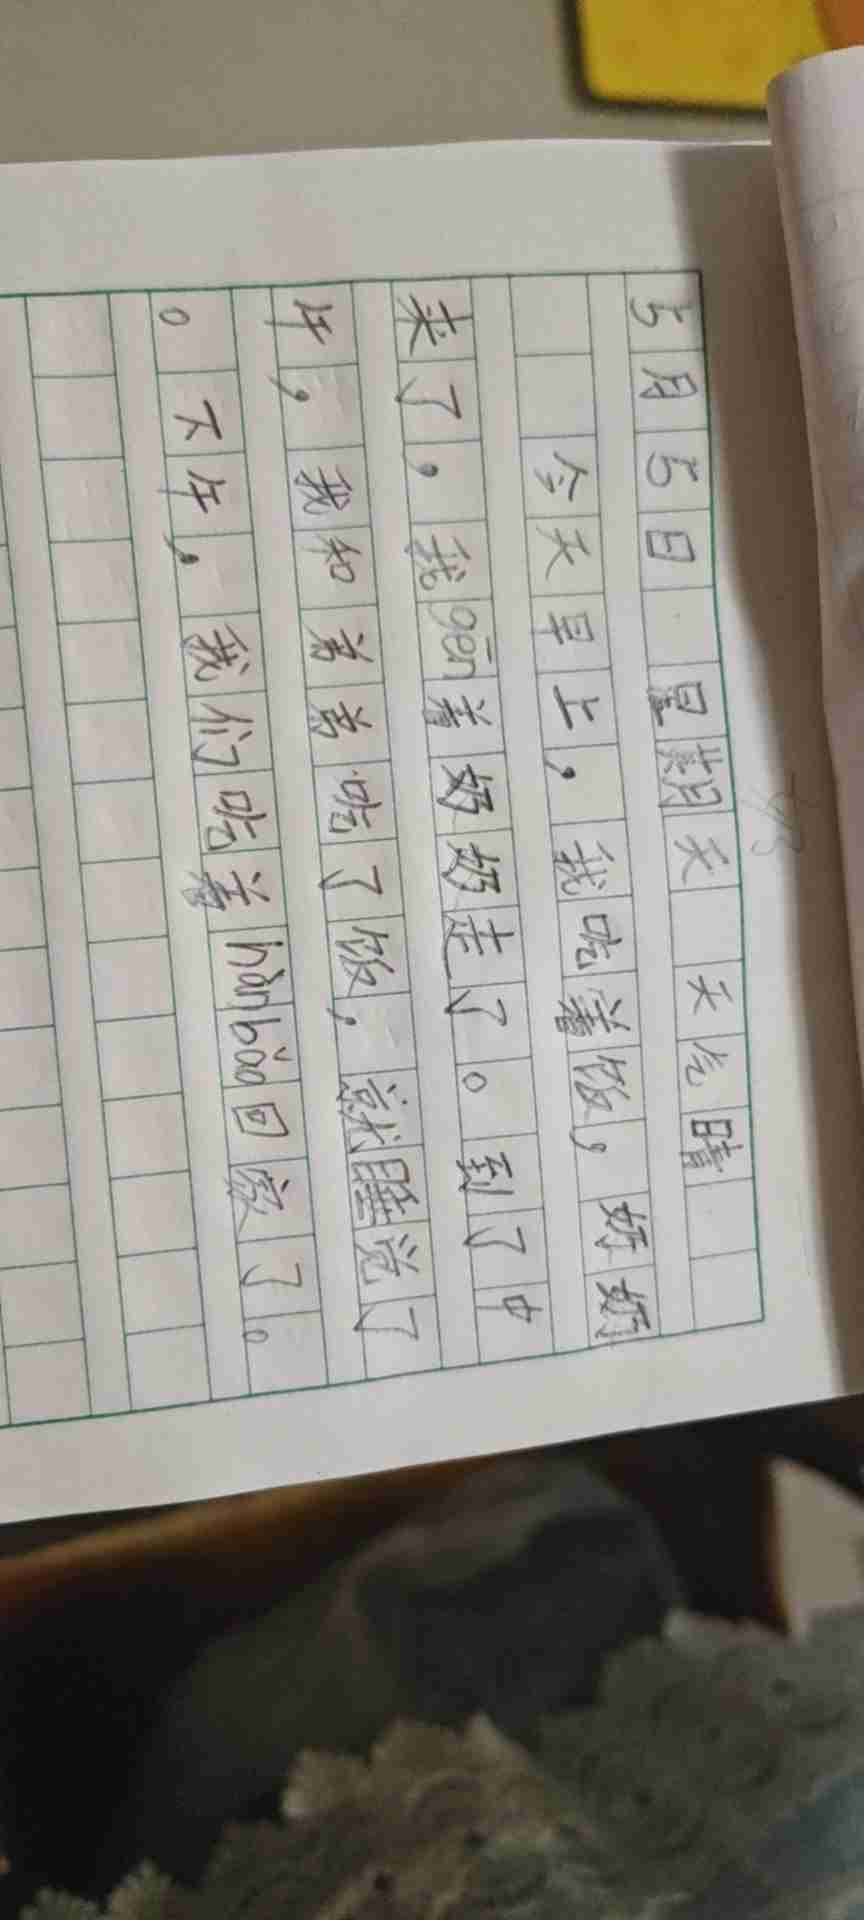 5月5日 星期天 天气晴
今天早上，我吃着饭，奶奶
来了，我gēn着奶奶走了。到了中
午，我和弟弟吃了饭，就睡觉了
。下午，我们吃着hànbǎo回家了。